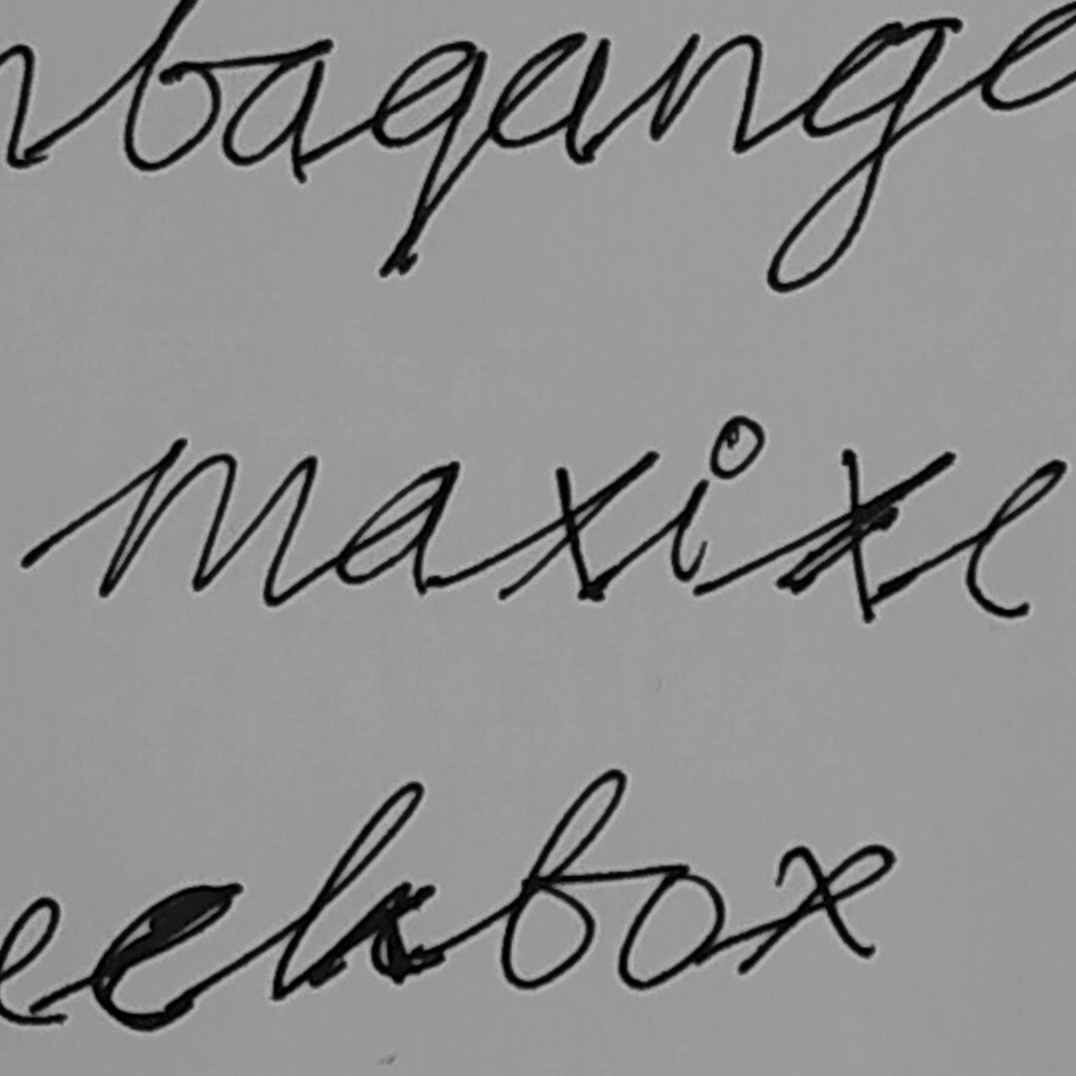 nbaqange
maxixe
eekbox